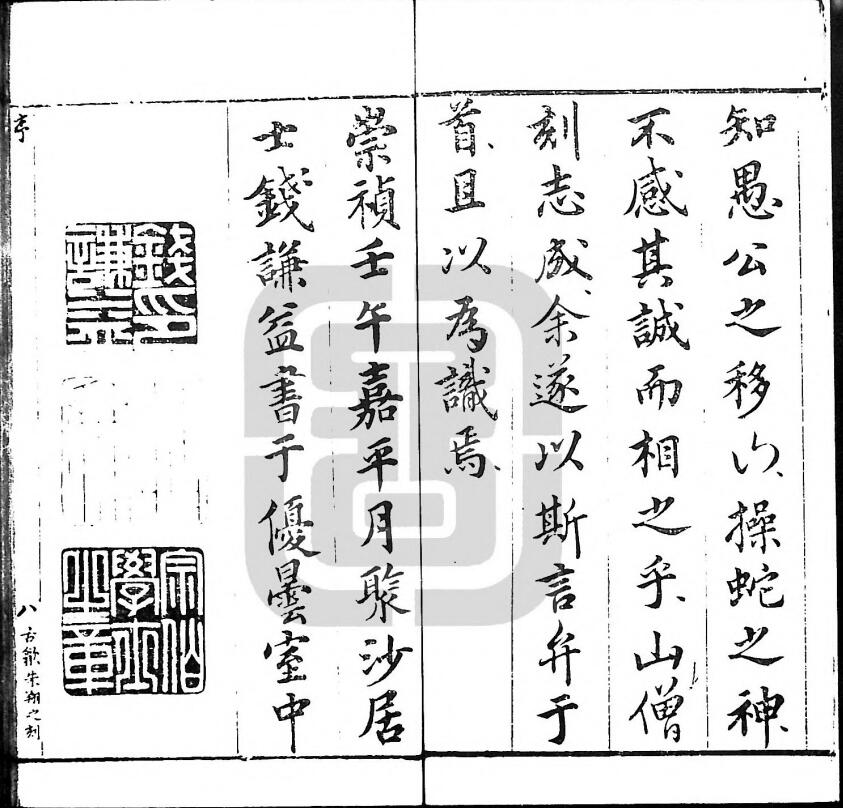 知愚公之移山、操蛇之神、
不感其誠而相之乎、山僧
刻志成、余遂以斯言弁于
首、且以為識焉、
崇禎壬午嘉平月聚沙居
士錢謙益書于優曇室中
錢印謙益
宗伯學士之章
序
八
古歙朱翔之刻